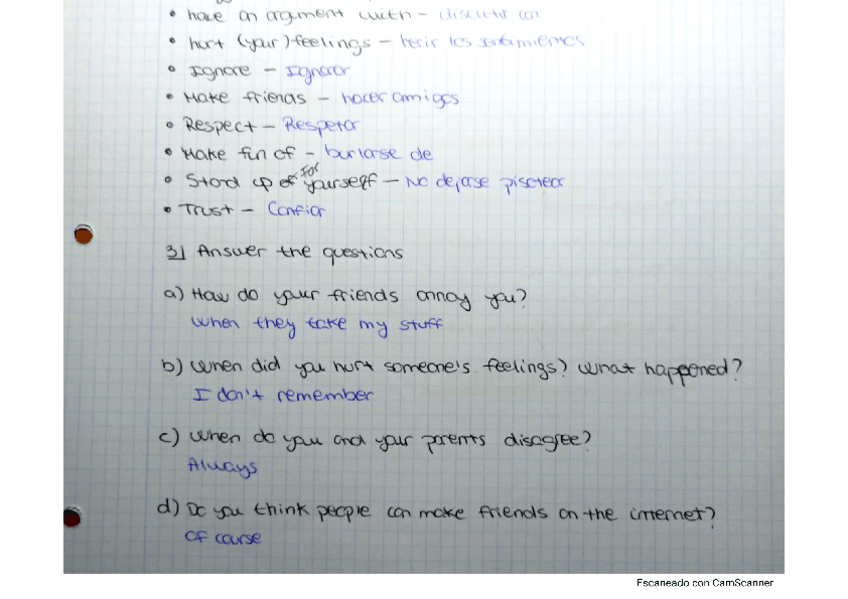 • have an argument with – discutir con
• hurt (your) feelings – herir los sentimientos
• Ignore – Ignorar
• Make friends – hacer amigos
• Respect – Respetar
• Make fun of – burlarse de
• Stand up for yourself – No dejarse pisotear
• Trust – Confiar
3) Answer the questions
a) How do your friends annoy you?
When they take my stuff
b) When did you hurt someone's feelings? What happened?
I don't remember
c) When do you and your parents disagree?
Always
d) Do you think people can make friends on the internet?
Of course
Escaneado con CamScanner